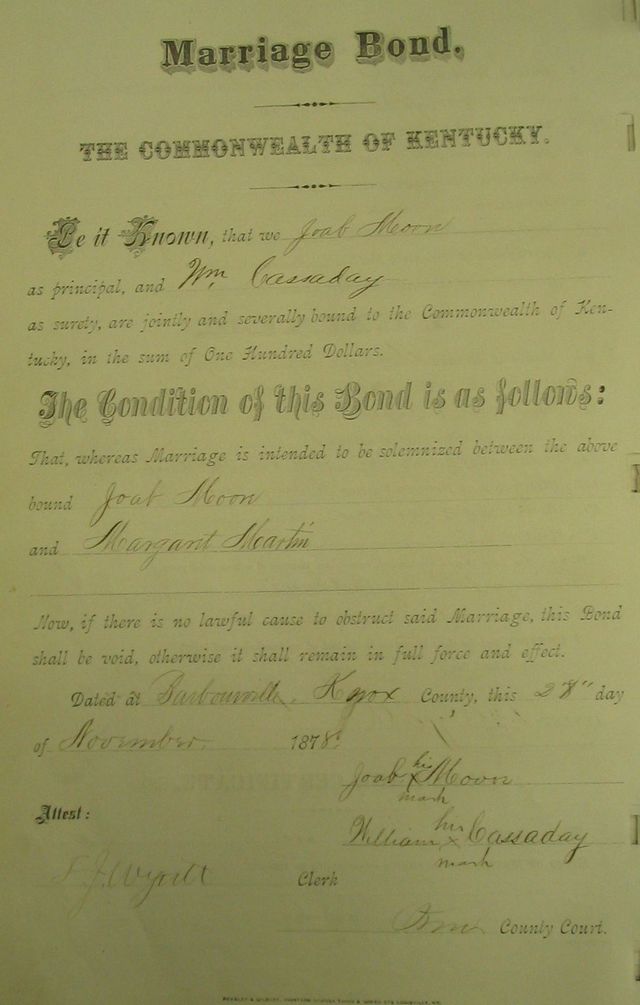 Marriage Bond.
THE COMMONWEALTH OF KENTUCKY.
Be it Known, that we Joab Moon
as principal, and Wm Cassaday
as surety, are jointly and severally bound to the Commonwealth of Ken-
tucky, in the sum of One Hundred Dollars.
The Condition of this Bond is as follows:
That, whereas Marriage is intended to be solemnized between the above
bound Joab Moon
and Margarit Martin
Now, if there is no lawful cause to obstruct said Marriage, this Bond
shall be void, otherwise it shall remain in full force and effect.
Dated at Barbourville, Knox County, this 28" day
of November 1878
Joab his x mark Moon
Attest:
William his x mark Cassaday
Clerk
County Court.